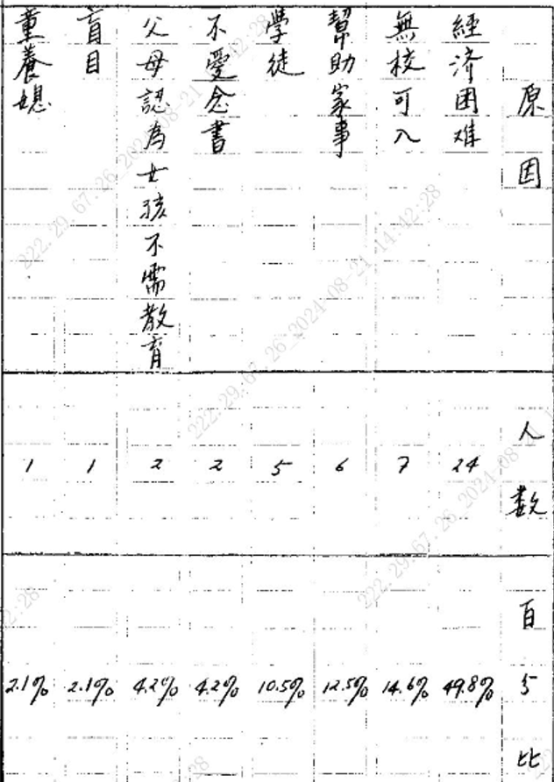 原因 人数 百分比
經济困难 24 49.8%
無校可入 7 14.6%
幫助家事 6 12.5%
學徒 5 10.5%
不愛念書 2 4.2%
父母認為女孩不需教育 2 4.2%
盲目 1 2.1%
童養媳 1 2.1%
222.29.67.26_2024-08-21_14:42:28
222.29.67.26_2024-08-21_14:42:28